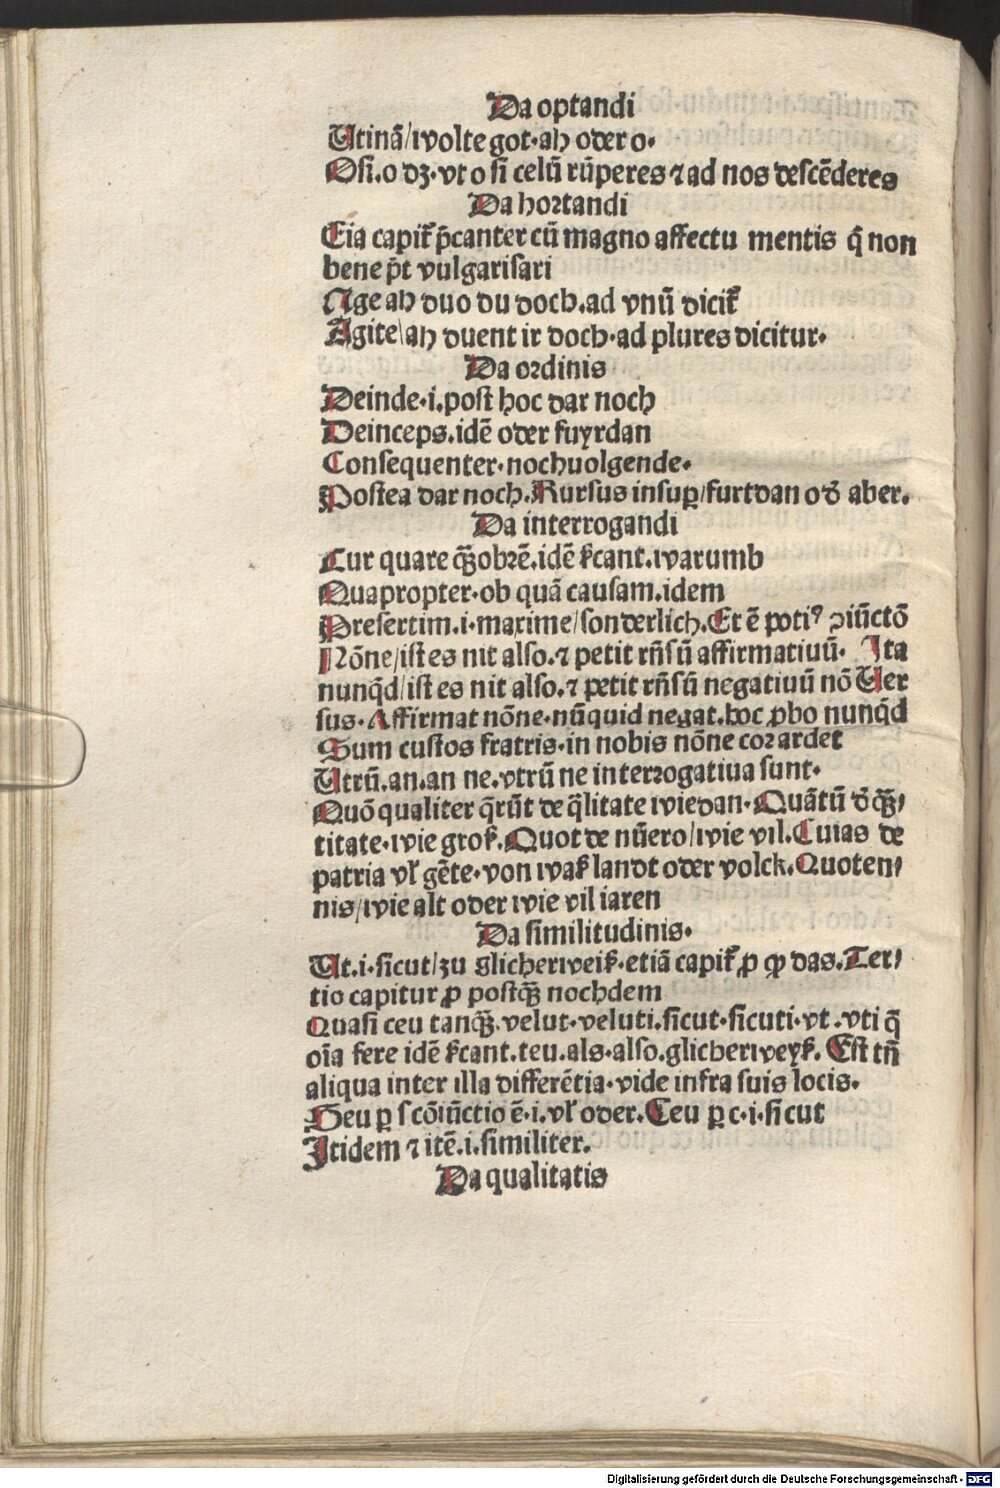 Da optandi
Utinã/wolte got·ah oder o·
Osi.o dz·vt o si celũ rũperes ⁊ ad nos descẽderes
Da hortandi
Eia capit̃ p̃canter cũ magno affectu mentis q̃ non
bene p̃t vulgarisari
Age ah duo du doch.ad vnũ dicit̃
Agite/ah duent ir doch·ad plures dicitur·
Da ordinis
Deinde·i.post hoc dar noch
Deinceps.idẽ oder fuyrdan
Consequenter·nochuolgende·
Postea dar noch.Rursus insuꝑ/furtdan ođ aber.
Da interrogandi
Cur quare qᷓobrẽ.idẽ s̃cant.warumb
Quapropter·ob quã causam.idem
Presertim.i·maxime/sonderlich.Et ẽ potiꝰ ꝯiũctõ
Nõne/ist es nit also.⁊ petit rñsũ affirmatiuũ· Ita
nunq̃d/ist es nit also.⁊ petit rñsũ negatiuũ nõ Uer
sus·Affirmat nõne·nũquid negat.hoc ꝓbo nunq̃d
Sum custos fratris·in nobis nõne cor ardet
Utrũ.an.an ne.vtrũ ne interrogatiua sunt·
Quõ qualiter q̃rũt de q̃litate wiedan·Quãtũ đ qᷓ⸗
titate·wie groß.Quot de nũero/wie vil.Cuias de
patria vl̃ gẽte·von waß landt oder volck.Quoten⸗
nis/wie alt oder wie vil iaren
Da similitudinis·
Ut.i·sicut/zu glicherweiß·etiã capit̃ ꝓ ꝙ das.Ter⸗
tio capitur ꝓ postqᷓ nochdem
Quasi ceu tanqᷓ.velut·veluti.sicut·sicuti·vt.vti q̃
oĩa fere idẽ s̃cant.teu.als·also.glicherweyß.Est tñ
aliqua inter illa differẽtia·vide infra suis locis·
Seu ꝑ s cõiũctio ẽ·i.vl̃ oder.Ceu ꝑ c·i·sicut
Itidem ⁊ itẽ.i.similiter.
Da qualitatis
Digitalisierung gefördert durch die Deutsche Forschungsgemeinschaft · DFG